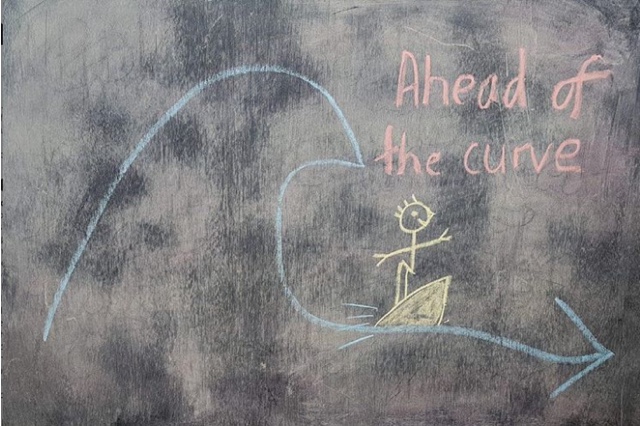 Ahead of
the curve